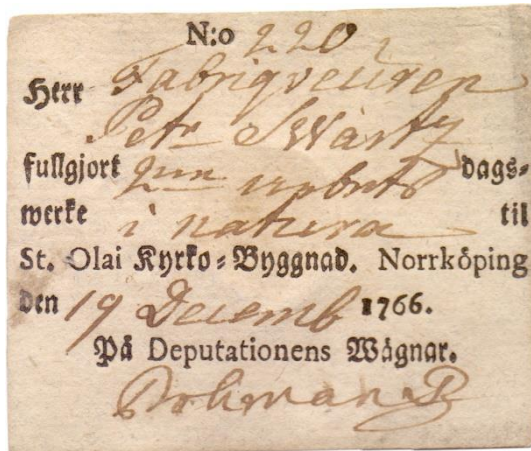 N:o 220
Herr Fabriqveuren
Petr Swartz
fullgjort arbets dags-
werke i natura til
St. Olai Kyrko-Byggnad. Norrköping
den 19 Decemb 1766.
På Deputationens Wägnar.